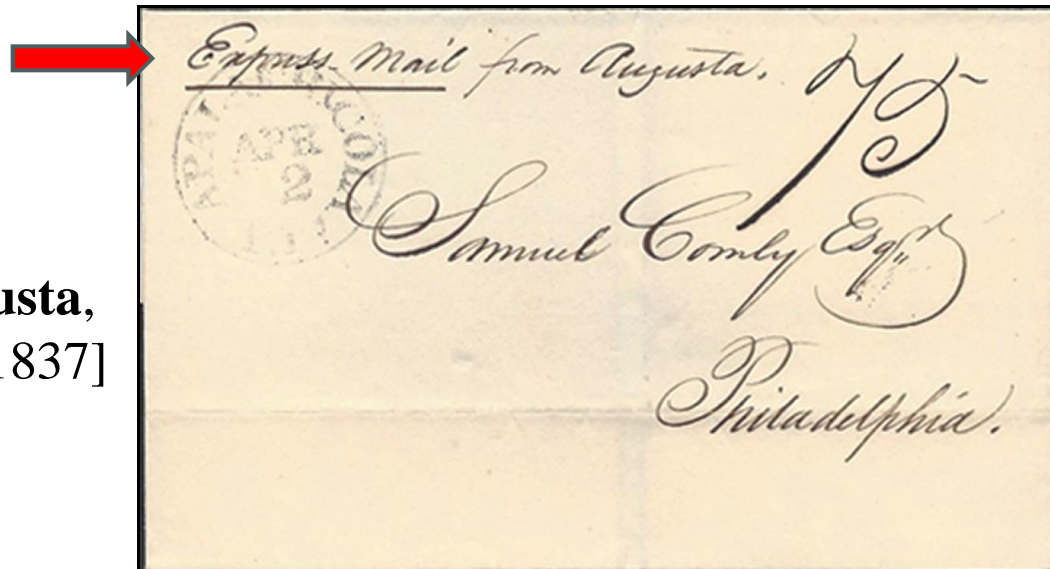 Express Mail from Augusta. 75
APALACHICOLA
APR
2
Samuel Comly Esqr
Philadelphia.
usta,
1837]